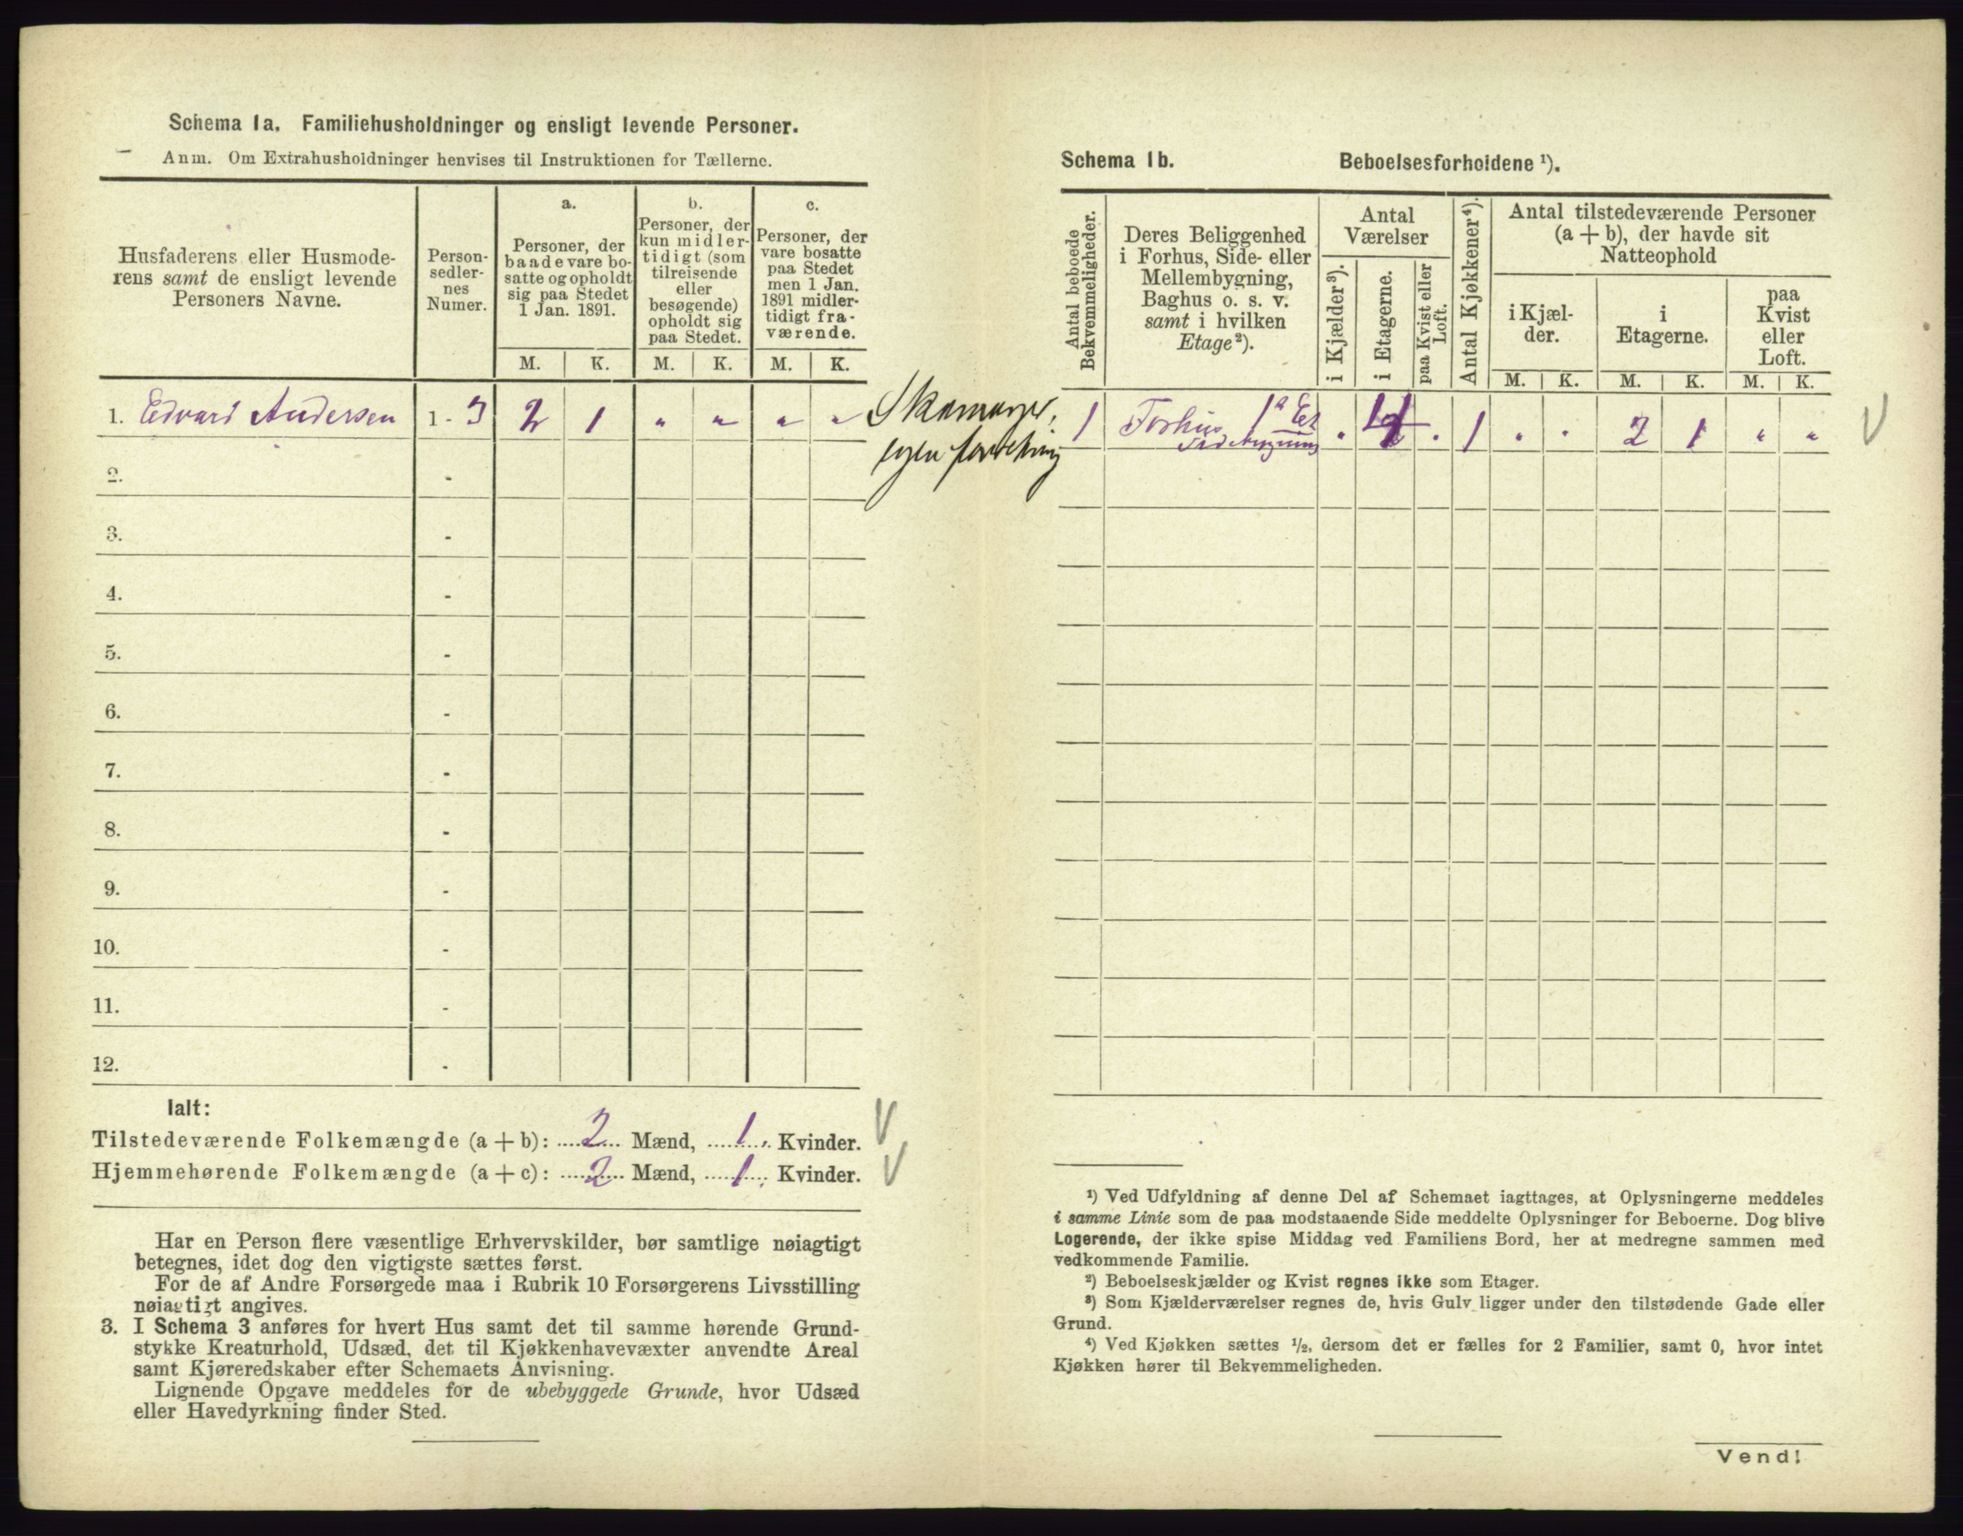 Schema 1a. Familiehusholdninger og ensligt levende Personer.
Anm. Om Extrahusholdninger henvises til Instruktionen for Tællerne.
Husfaderens eller Husmode-
rens samt de ensligt levende
Personers Navne.
Person-
sedler-
nes
Numer.
a.
Personer, der
baade vare bo-
satte og opholdt
sig paa Stedet
1 Jan. 1891.
b.
Personer, der
kun midler-
tidigt (som
tilreisende
eller
besøgende)
opholdt sig
paa Stedet.
c.
Personer, der
vare bosatte
paa Stedet
men 1 Jan.
1891 midler-
tidigt fra-
værende.
M. K. M. K. M. K.
1. Edvard Andersen 1 - 3 2 1 " " " "
Skomager,
egen forretning
2. -
3. -
4. -
5. -
6. -
7. -
8. -
9. -
10. -
11. -
12. -
Ialt:
Tilstedeværende Folkemængde (a + b): 2 Mænd, 1 Kvinder.
Hjemmehørende Folkemængde (a + c): 2 Mænd, 1 Kvinder.
Har en Person flere væsentlige Erhvervskilder, bør samtlige nøiagtigt
betegnes, idet dog den vigtigste sættes først.
For de af Andre Forsørgede maa i Rubrik 10 Forsørgerens Livsstilling
nøiagtigt angives.
3. I Schema 3 anføres for hvert Hus samt det til samme hørende Grund-
stykke Kreaturhold, Udsæd, det til Kjøkkenhavevæxter anvendte Areal
samt Kjøreredskaber efter Schemaets Anvisning.
Lignende Opgave meddeles for de ubebyggede Grunde, hvor Udsæd
eller Havedyrkning finder Sted.
Schema 1b. Beboelsesforholdene ¹).
Antal beboede
Bekvemmeligheder.
Deres Beliggenhed
i Forhus, Side- eller
Mellembygning,
Baghus o. s. v.
samt i hvilken
Etage²).
Antal
Værelser
i Kjælder³).
i Etagerne.
paa Kvist eller
Loft.
Antal Kjøkkener⁴).
Antal tilstedeværende Personer
(a + b), der havde sit
Natteophold
i Kjæl-
der.
i
Etagerne.
paa
Kvist
eller
Loft.
M. K. M. K. M. K.
1 Forhus 1ª Et . 4 . 1 . . 2 1 " "
Sidebygning
¹) Ved Udfyldning af denne Del af Schemaet iagttages, at Oplysningerne meddeles
i samme Linie som de paa modstaaende Side meddelte Oplysninger for Beboerne. Dog blive
Logerende, der ikke spise Middag ved Familiens Bord, her at medregne sammen med
vedkommende Familie.
²) Beboelseskjælder og Kvist regnes ikke som Etager.
³) Som Kjælderværelser regnes de, hvis Gulv ligger under den tilstødende Gade eller
Grund.
⁴) Ved Kjøkken sættes ½, dersom det er fælles for 2 Familier, samt 0, hvor intet
Kjøkken hører til Bekvemmeligheden.
Vend!